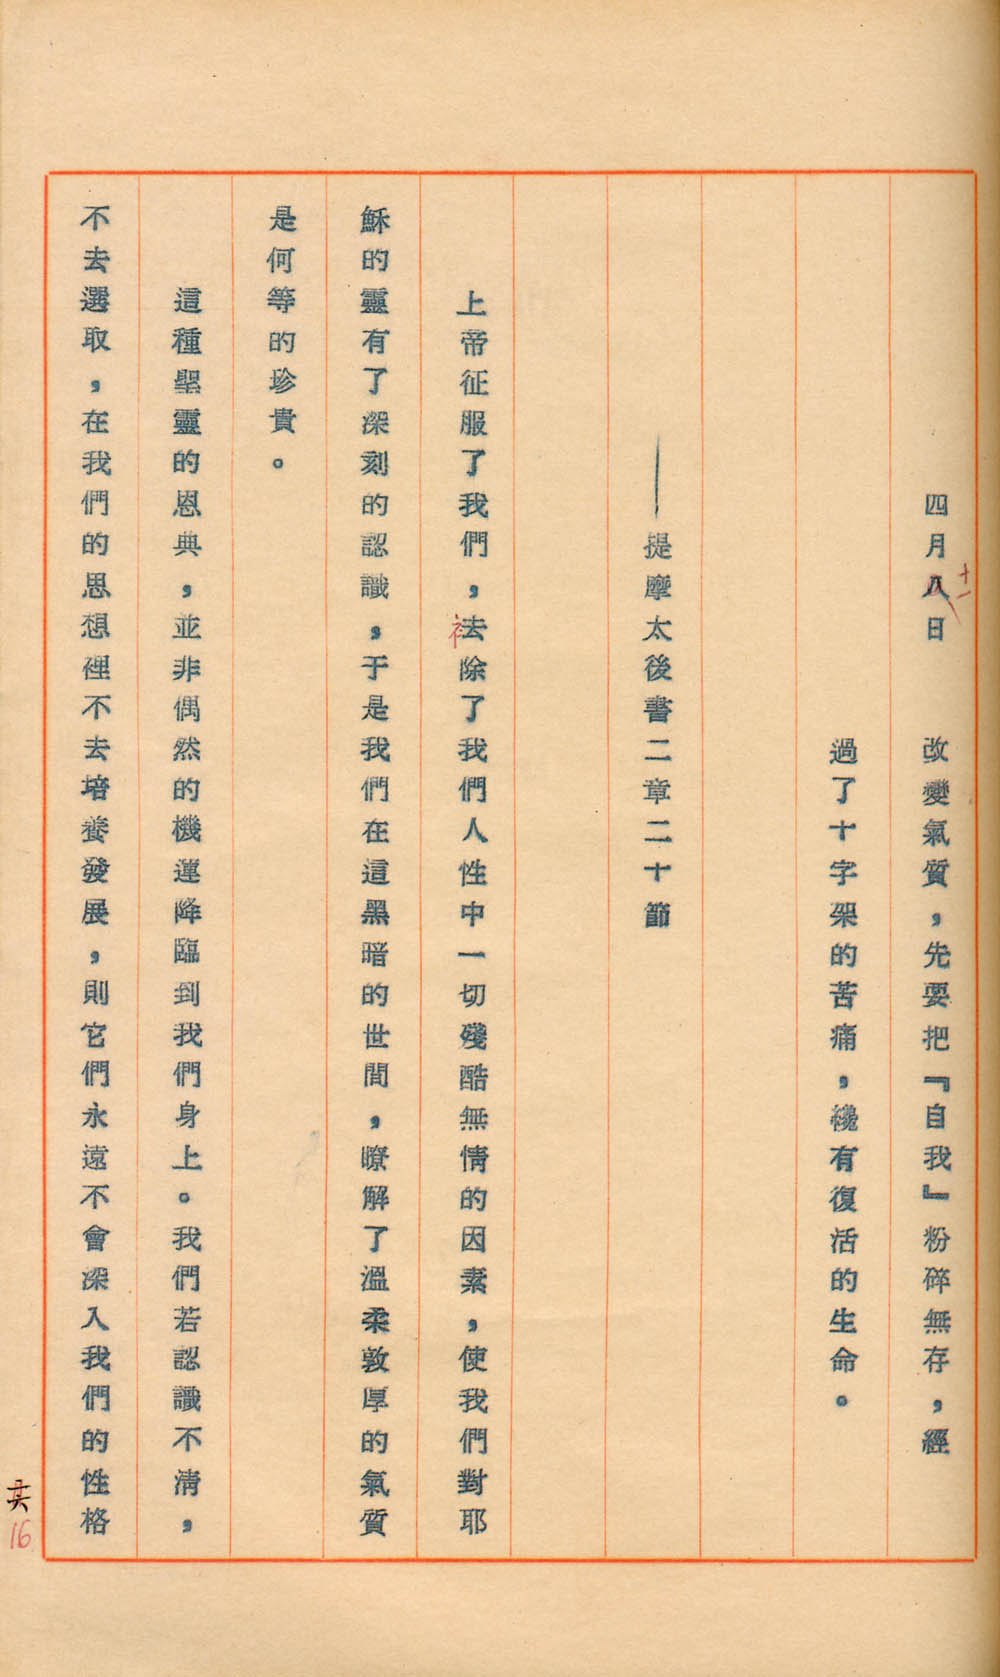 四月八日　改變氣質，先要把『自我』粉碎無存，經
十一
過了十字架的苦痛，纔有復活的生命。
——提摩太後書二章二十節
上帝征服了我們，去除了我們人性中一切殘酷無情的因素，使我們對耶
穌的靈有了深刻的認識，于是我們在這黑暗的世間，瞭解了溫柔敦厚的氣質
是何等的珍貴。
這種聖靈的恩典，並非偶然的機運降臨到我們身上。我們若認識不清，
不去選取，在我們的思想裡不去培養發展，則它們永遠不會深入我們的性格
16